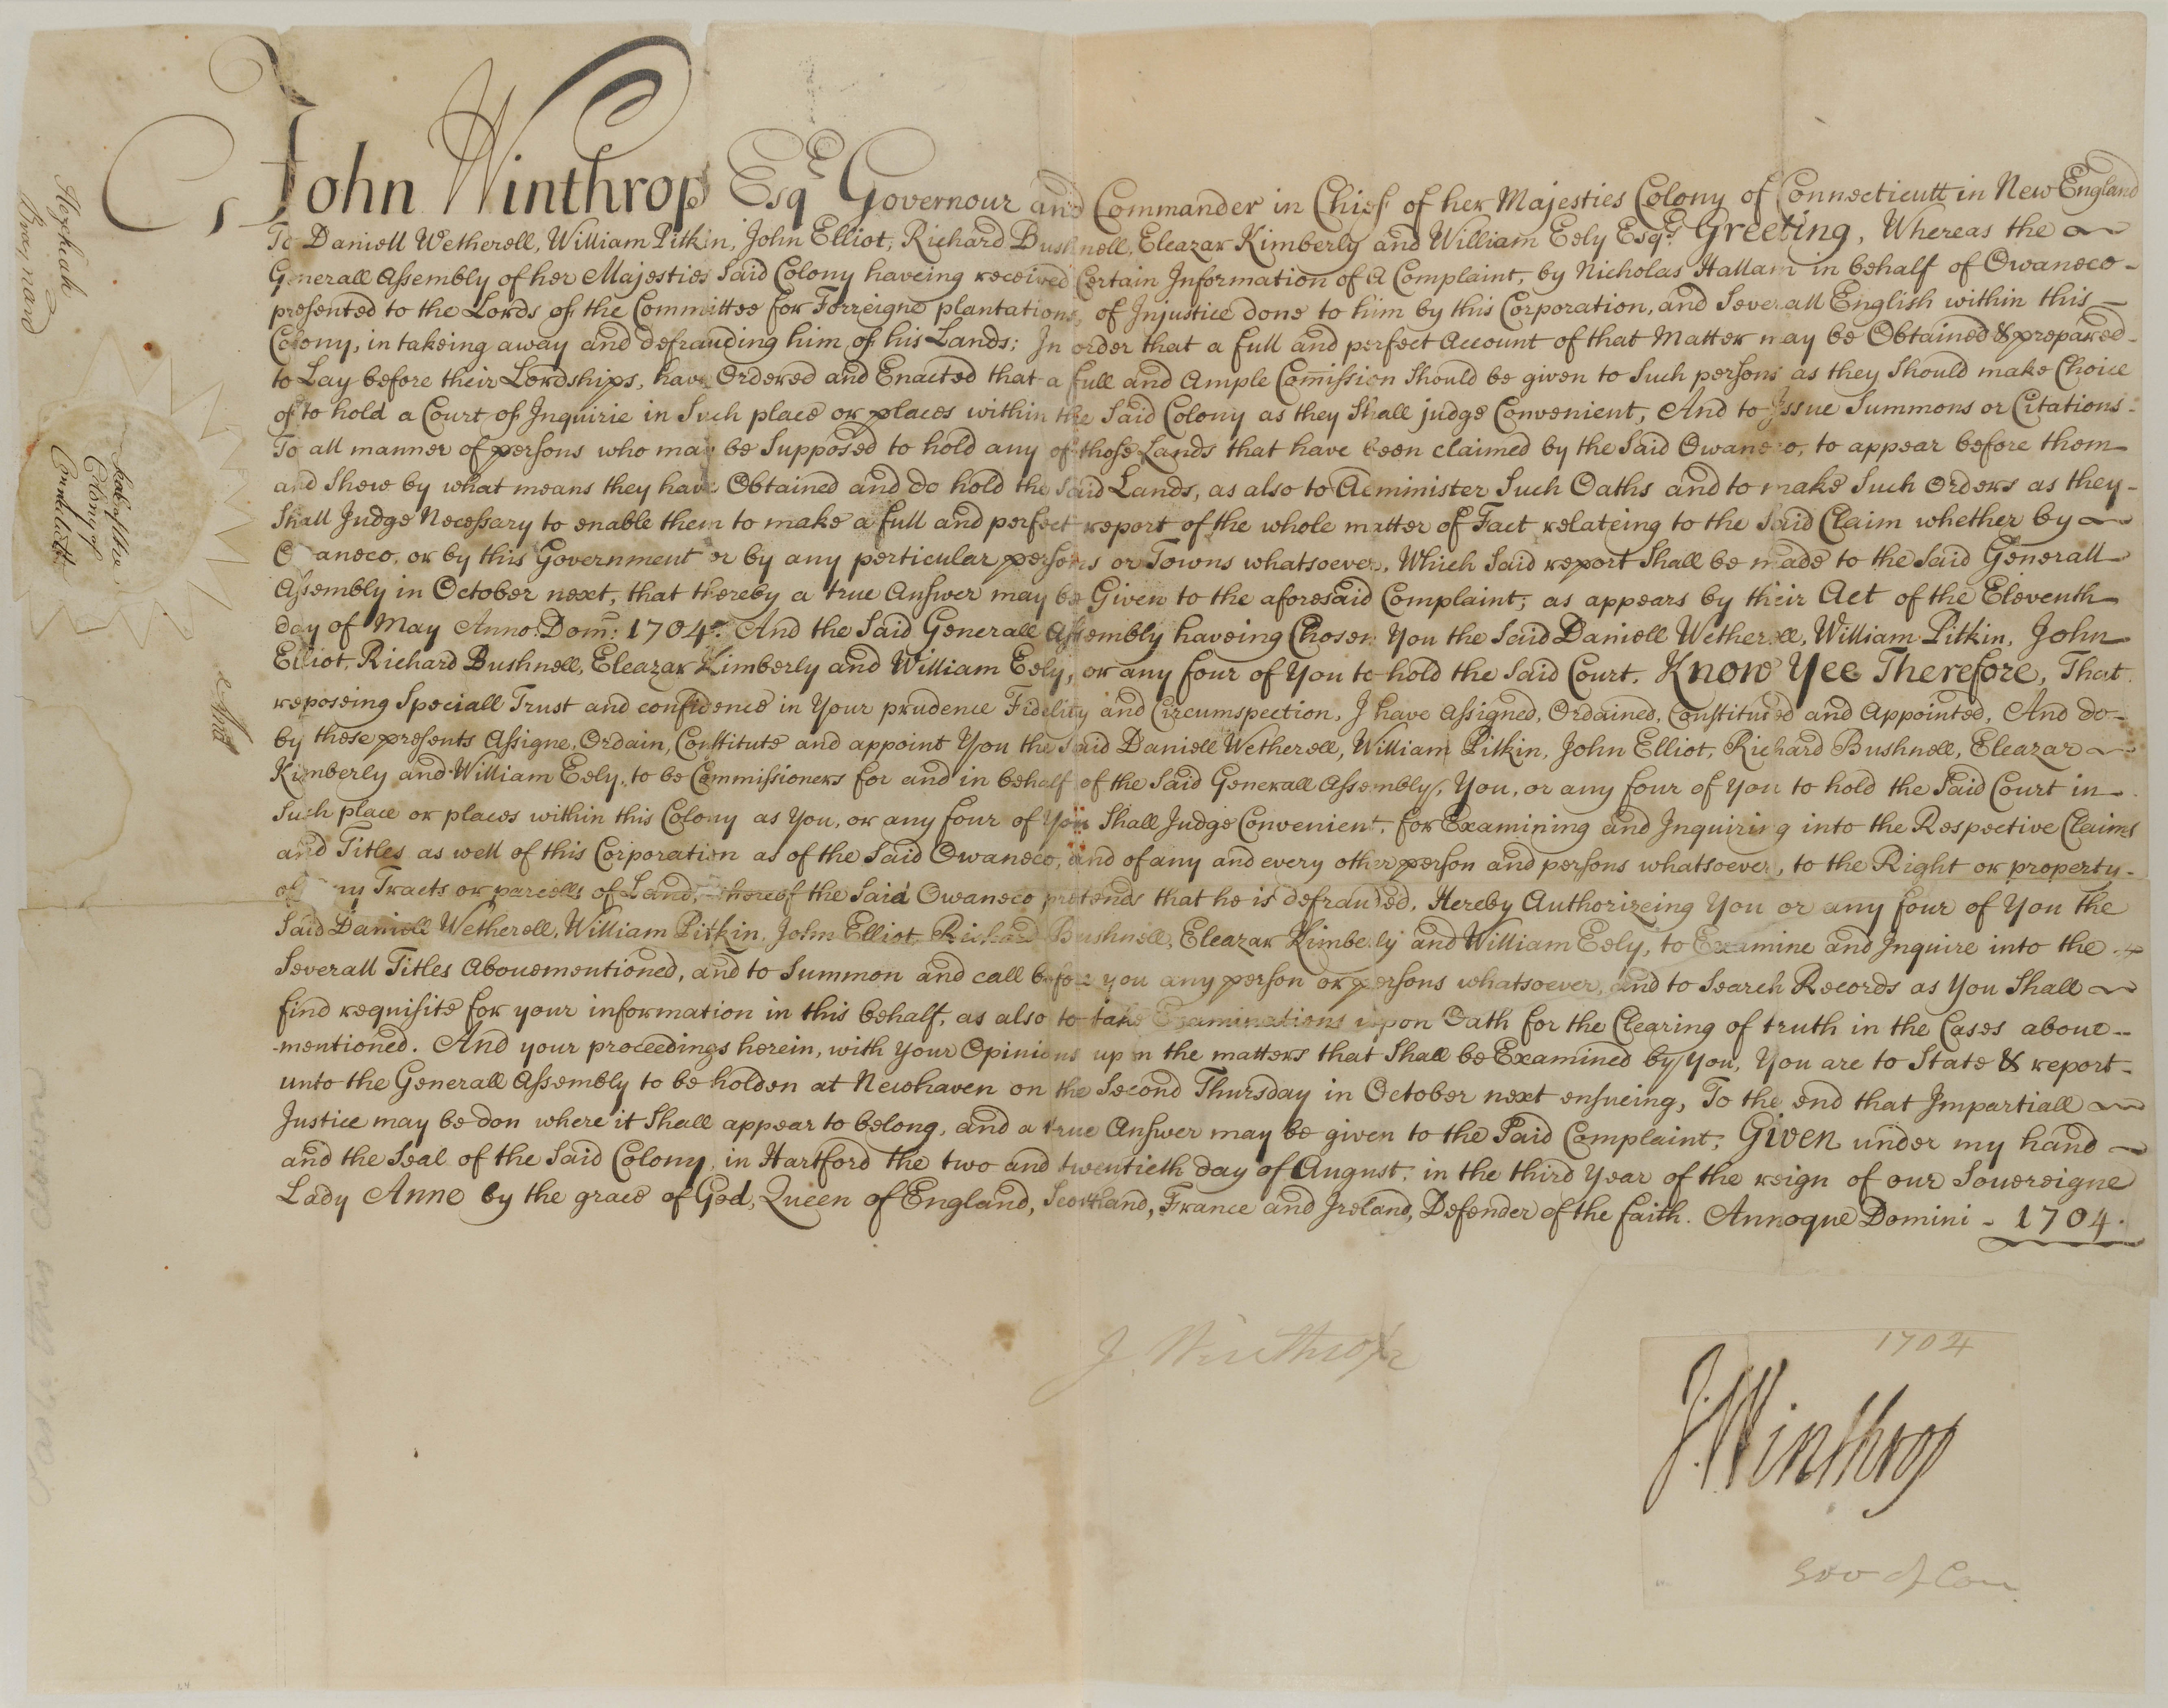 John Winthrop Esqr Governour and Commander in Chief of her Majesties Colony of Connecticutt in New England
To Daniell Wetherell, William Pitkin, John Elliot, Richard Bushnell, Eleazar Kimberly and William Eely Esqrs Greeting, Whereas the
Generall Assembly of her Majesties Said Colony haveing received Certain Information of a Complaint, by Nicholas Hallam in behalf of Owaneco -
presented to the Lords of the Committee for Forreigne plantations, of Injustice done to him by this Corporation, and Severall English within this -
Colony, in takeing away and defrauding him of his Lands; In order that a full and perfect Account of that Matter may be Obtained & prepared -
to Lay before their Lordships, have Ordered and Enacted that a full and Ample Comission Should be given to Such persons as they Should make Choice
of to hold a Court of Inquirie in Such place or places within the Said Colony as they Shall judge Convenient, And to Issue Summons or Citations -
To all manner of persons who may be Supposed to hold any of those Lands that have been claimed by the Said Owaneco, to appear before them
and Shew by what means they have Obtained and do hold the Said Lands, as also to Administer Such Oaths and to make Such Orders as they -
Shall Judge Necessary to enable them to make a full and perfect report of the whole matter of Fact relateing to the Said Claim whether by
Owaneco, or by this Government or by any perticular persons or Towns whatsoever, Which Said report Shall be made to the Said Generall
Assembly in October next, that thereby a true Answer may be Given to the aforesaid Complaint; as appears by their Act of the Eleventh
day of May Anno: Dom: 1704. And the Said Generall Assembly haveing Chosen You the Said Daniell Wetherell, William Pitkin, John
Elliot, Richard Bushnell, Eleazar Kimberly and William Eely, or any four of You to hold the Said Court. Know Yee Therefore, That
reposeing Speciall Trust and confidence in Your prudence Fidelity and Circumspection, I have Assigned, Ordained, Constituted and Appointed, And do -
by these presents Assigne, Ordain, Constitute and appoint You the Said Daniell Wetherell, William Pitkin, John Elliot, Richard Bushnell, Eleazar
Kimberly and William Eely, to be Commissioners for and in behalf of the Said Generall Assembly, You, or any four of You to hold the Said Court in -
Such place or places within this Colony as You, or any four of You Shall Judge Convenient, for Examining and Inquiring into the Respective Claims
and Titles as well of this Corporation as of the Said Owaneco, and of any and every other person and persons whatsoever, to the Right or property -
of any Tracts or parcells of Land, whereof the Said Owaneco pretends that he is defrauded, Hereby Authorizeing You or any four of You the
Said Daniell Wetherell, William Pitkin, John Elliot, Richard Bushnell, Eleazar Kimberly and William Eely, to Examine and Inquire into the
Severall Titles Abovementioned, and to Summon and call before you any person or persons whatsoever, and to Search Records as You Shall
find requisite for your information in this behalf, as also to take Examinations upon Oath for the Clearing of truth in the Cases above -
-mentioned. And your proceedings herein, with your Opinions upon the matters that Shall be Examined by You, You are to State & report -
unto the Generall Assembly to be holden at Newhaven on the Second Thursday in October next ensueing, To the end that Impartiall
Justice may be don where it Shall appear to belong, and a true Answer may be given to the Said Complaint; Given under my hand
and the Seal of the Said Colony in Hartford the two and twentieth day of August, in the third Year of the reign of our Souereigne
Lady Anne by the grace of God, Queen of England, Scottland, France and Ireland, Defender of the faith. Annoque Domini - 1704.
J. Winthrop
1704
J. Winthrop
Gov of Con
Hezekiah
Braynard
Seal of the
Colony of
Connecticutt